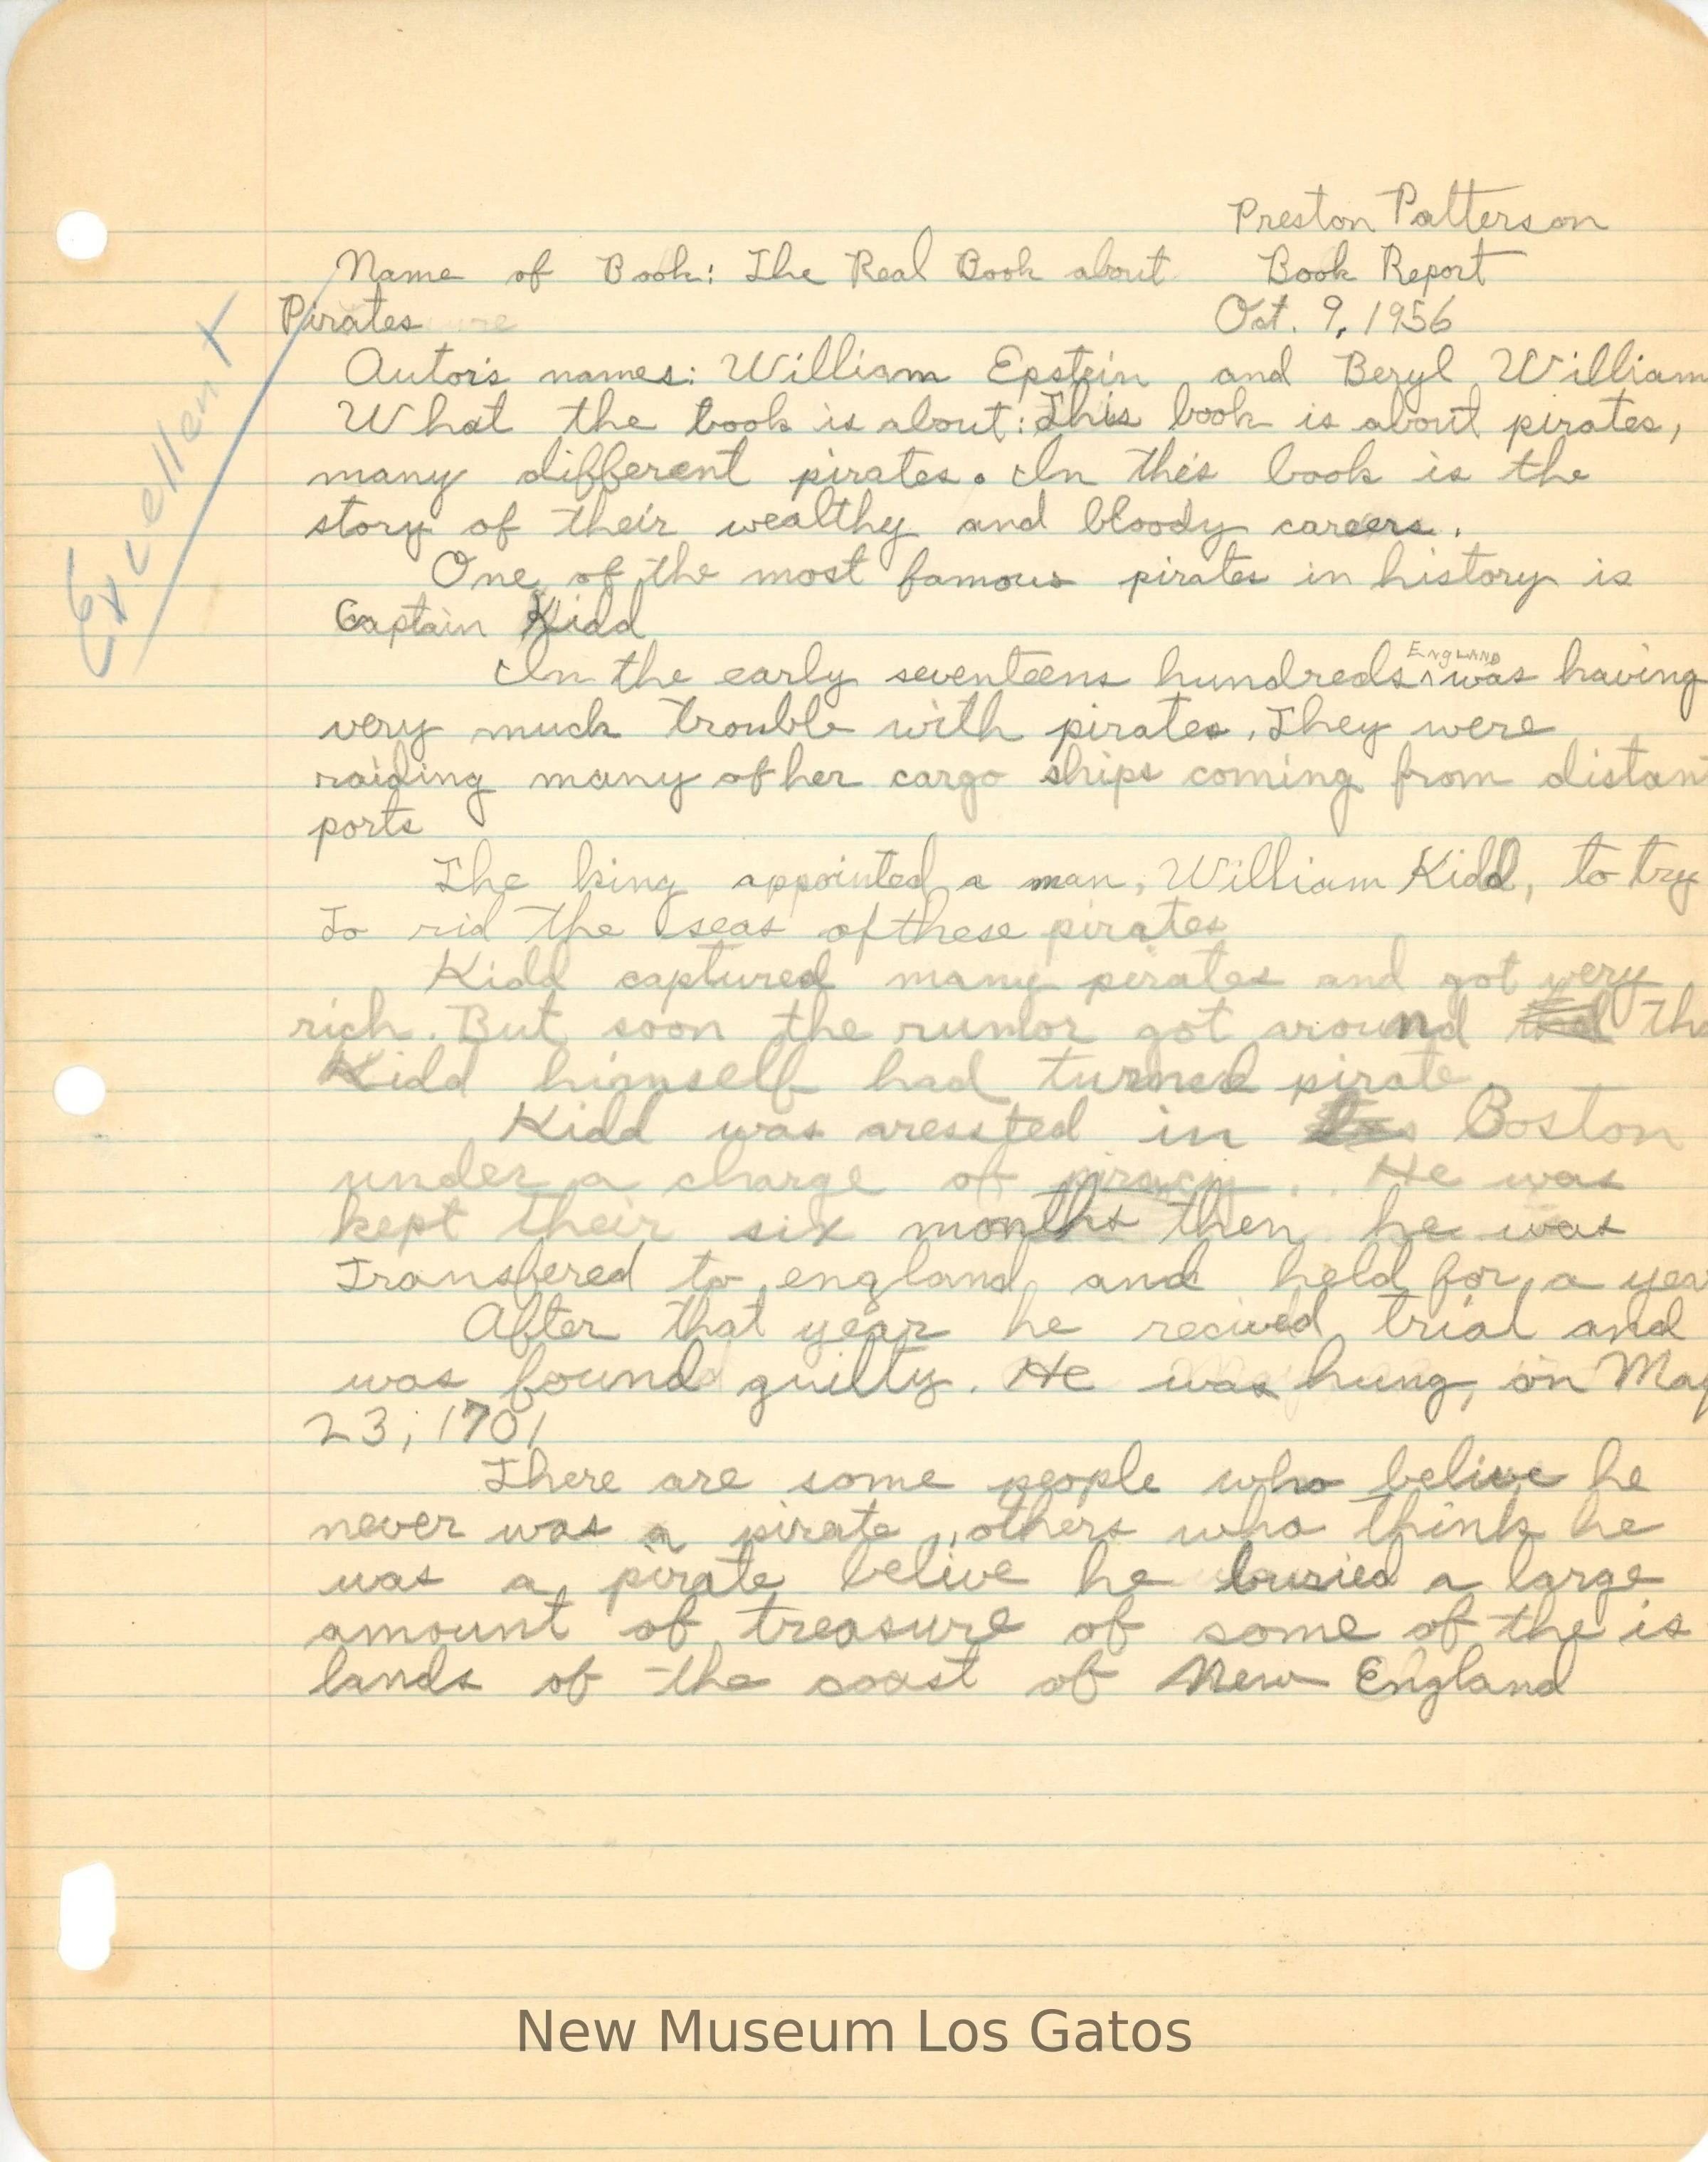 Preston Patterson
Name of Book: The Real Book about Book Report
Pirates Oct. 9, 1956
Autor's names: William Epstein and Beryl William
What the book is about: This book is about pirates,
many different pirates. In this book is the
story of their wealthy and bloody careers.
One of the most famous pirates in history is
Captain Kidd
In the early seventeens hundreds England was having
very much trouble with pirates. They were
raiding many of her cargo ships coming from distan
ports
The king appointed a man, William Kidd, to try
To rid the seas of these pirates
Kidd captured many pirates and got very
rich. But soon the rumor got around th
Kidd himself had turned pirate
Kidd was aressted in Boston
under a charge of piracy. He was
kept their six months then he was
Transfered to england and held for a year
After that year he recived trial and
was found guilty. He was hung, on May
23, 1701
There are some people who belive he
never was a pirate, others who think he
was a pirate belive he buried a large
amount of treasure of some of the is
lands of the coast of New England
Excellent
New Museum Los Gatos